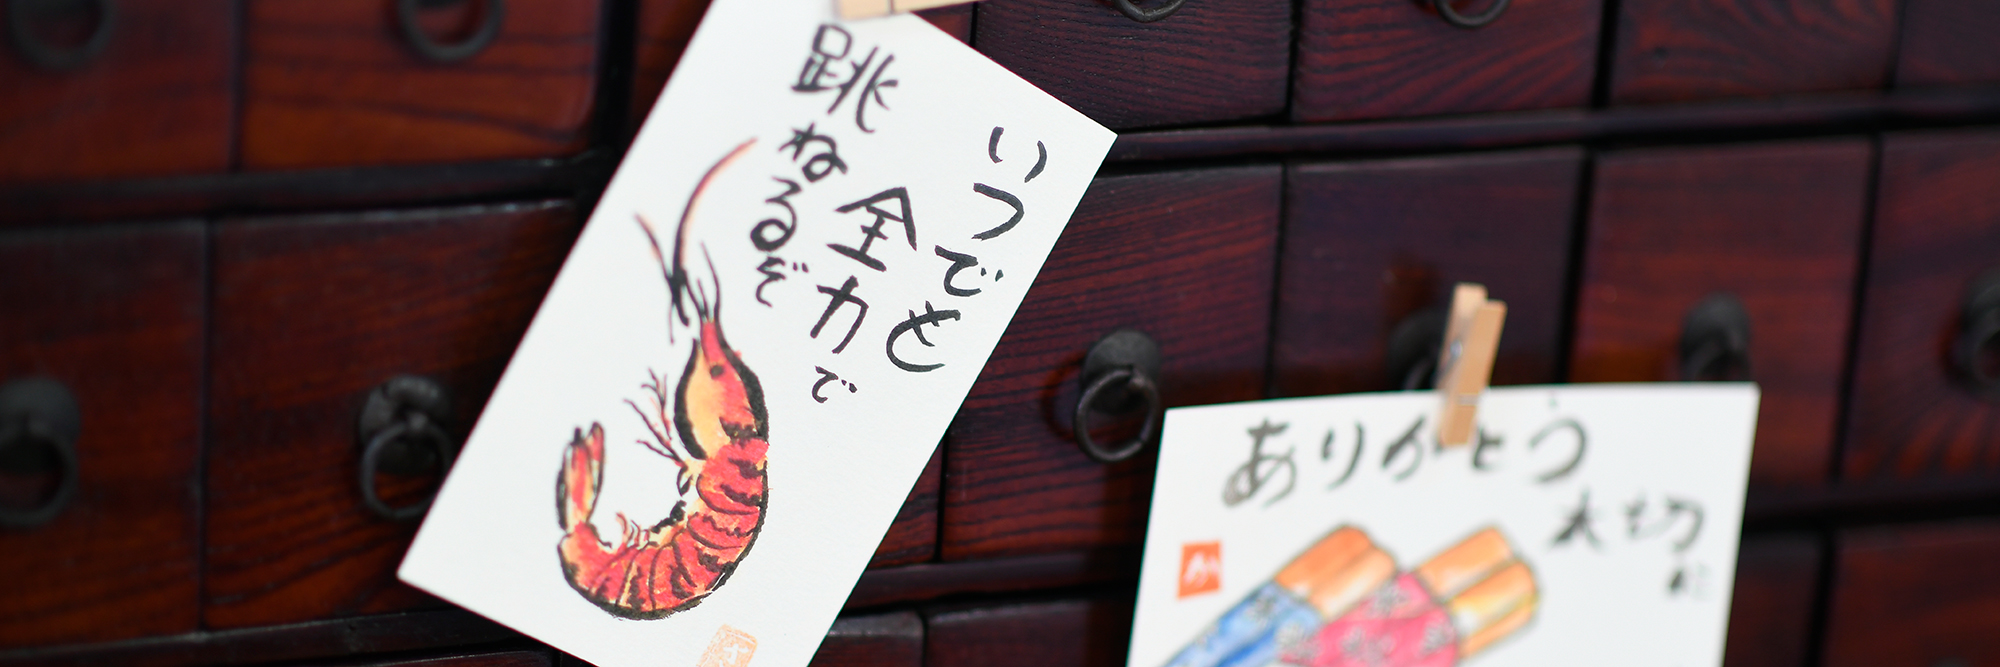 いつでも
全力で
跳ねるぞ
ありがとう
大切に
か